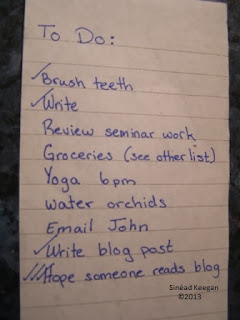 To Do:
✓Brush teeth
✓Write
Review seminar work
Groceries (see other list)
Yoga 6pm
water orchids
Email John
✓Write blog post
✓✓✓Hope someone reads blog
Sinéad Keegan
©2013